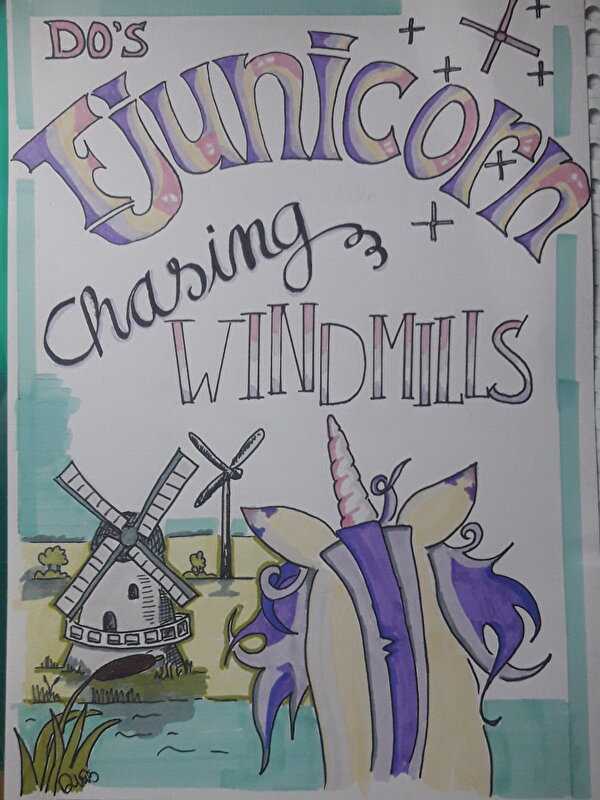 DO'S
Ejunicorn
Chasing
WINDMILLS